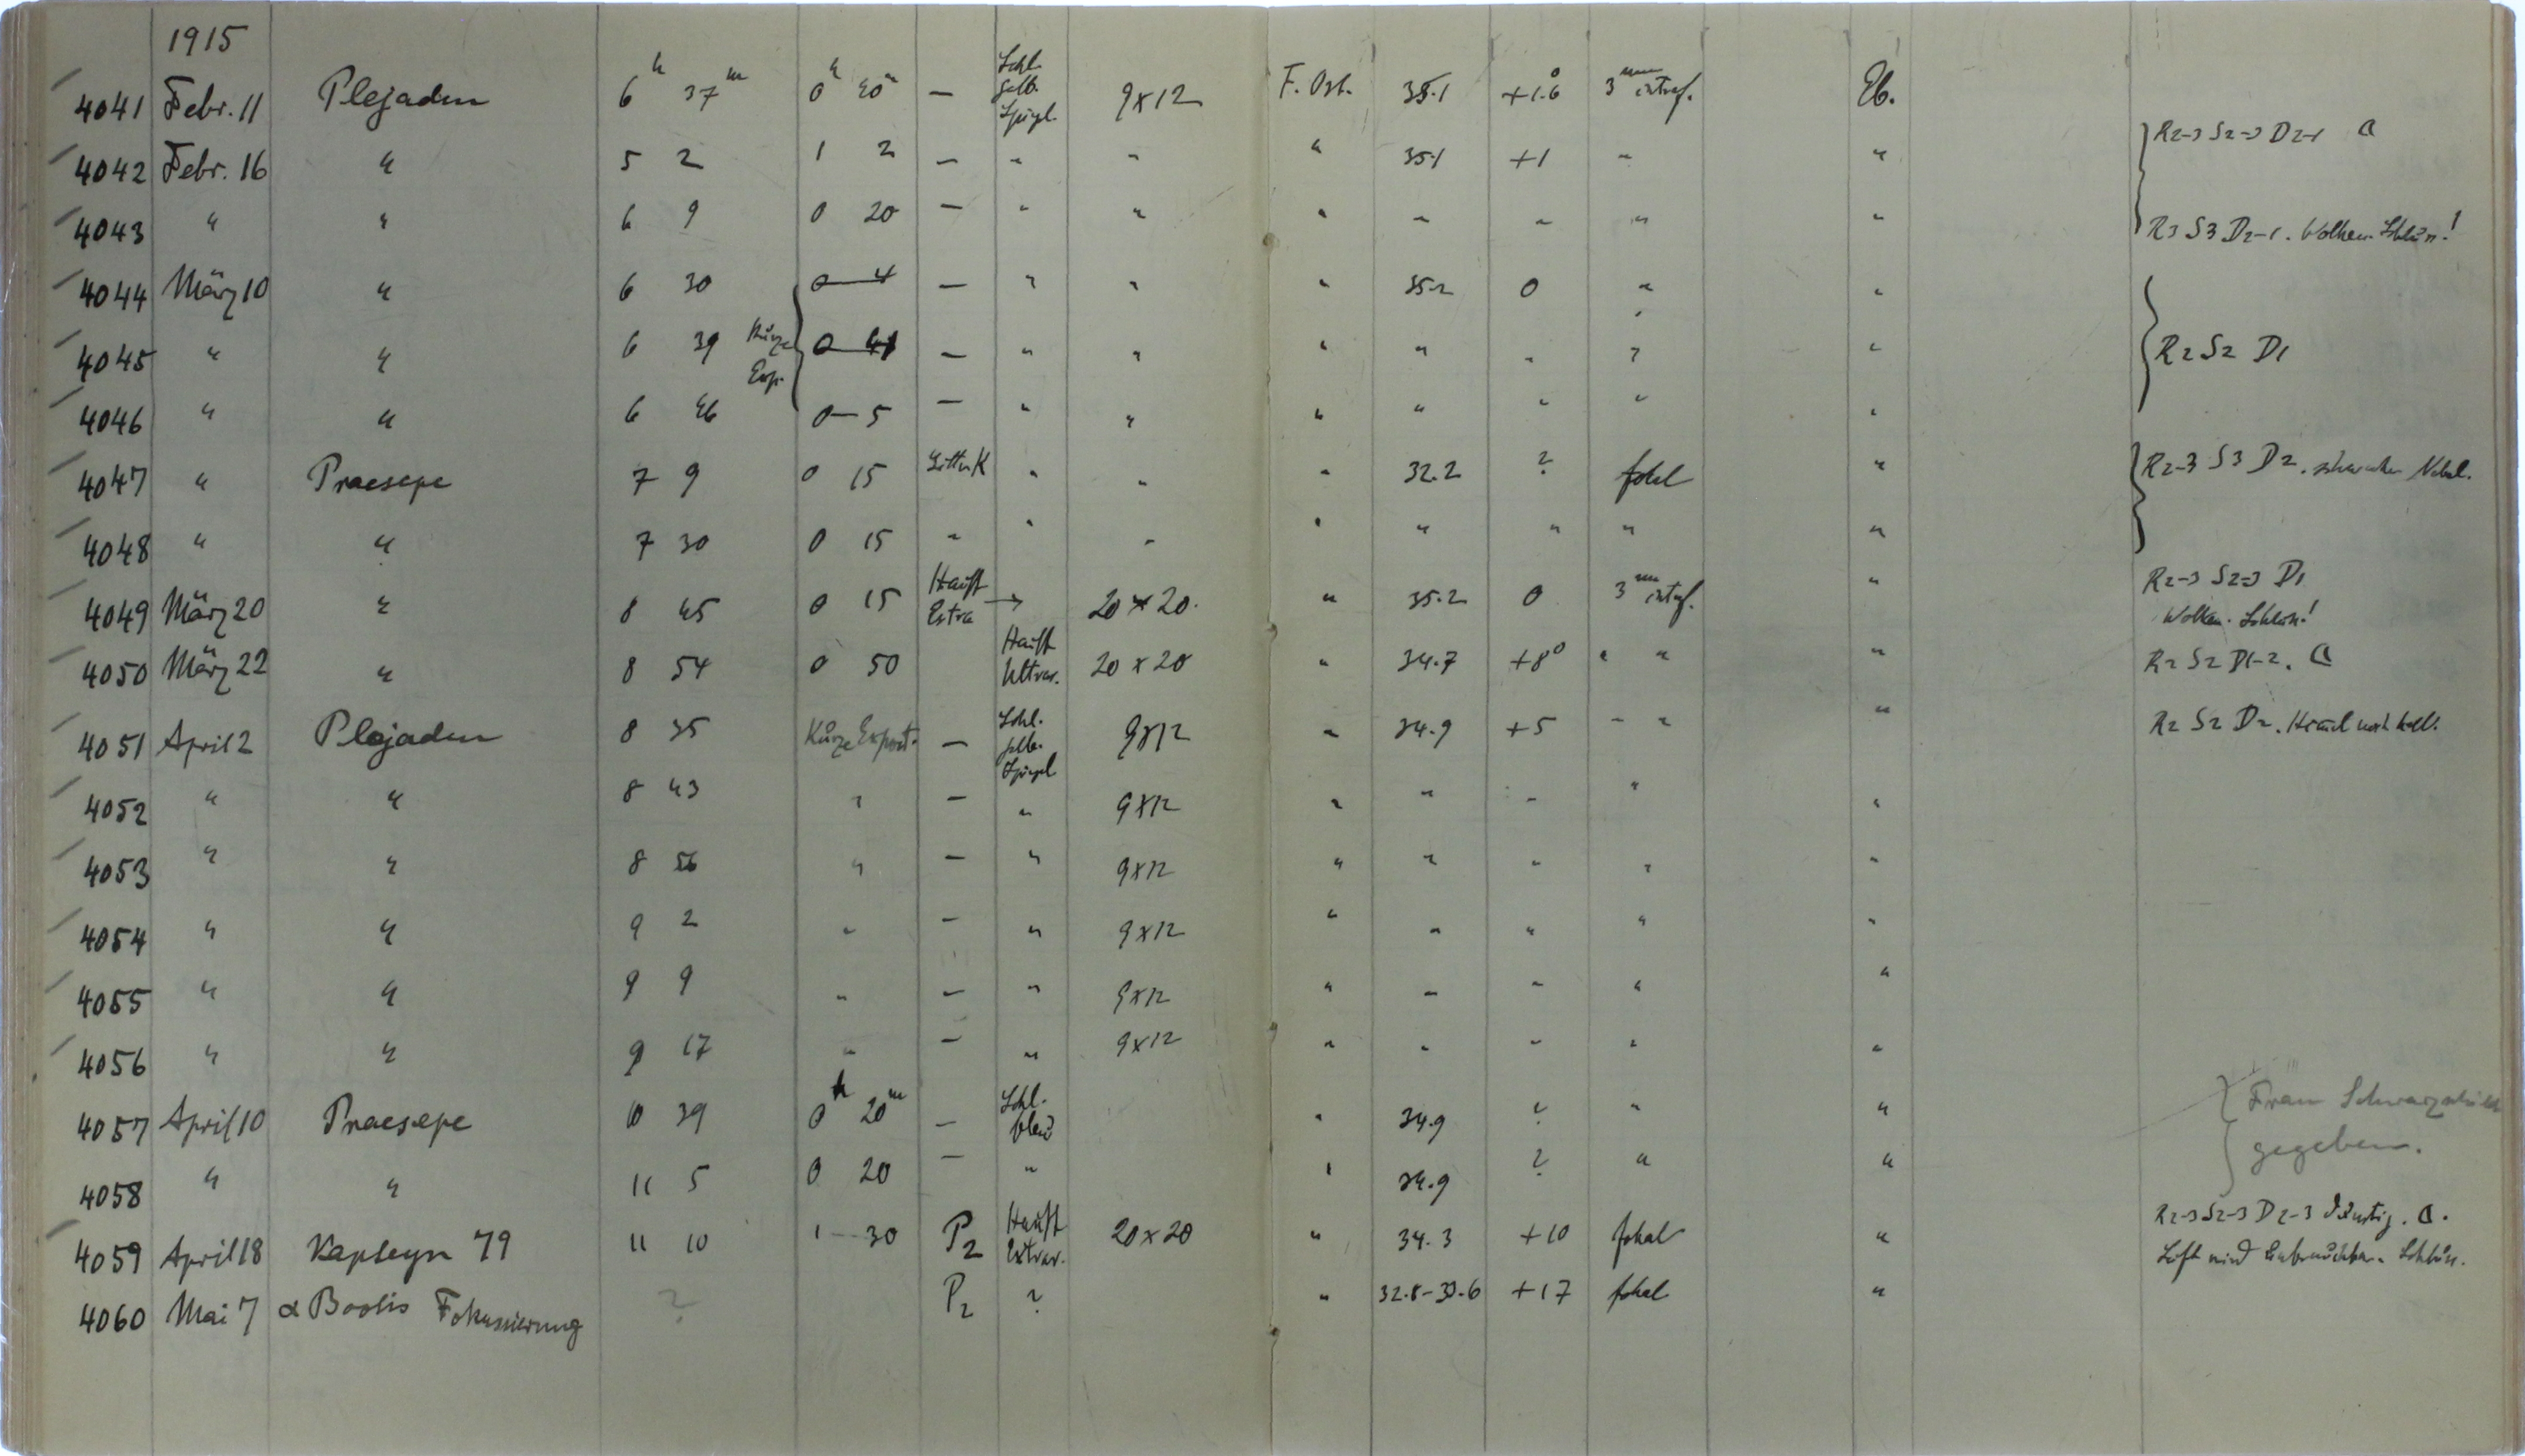 1915
4041 Febr. 11 Plejaden 6h 37m 0h 40m — Schl. gelb. Spiegl. 9x12 F. Ost. 35.1 +1.6° 3mm intraf. Eb.
4042 Febr. 16 " 5 2 1 2 — " " " 35.1 +1 " " R2-3 S2-3 D2-1
4043 " " 6 9 0 20 — " " " " " " " R3 S3 D2-1. Wolken. Schluss!
4044 März 10 " 6 30 0 4 — " " " 35.2 0 " "
4045 " " 6 39 Kurze Exp. 0 — " " " " " " " R2 S2 D1
4046 " " 6 46 0 5 — " " " " " " "
4047 " Praesepe 7 9 0 15 Gitter K " " " 32.2 ? fokal " R2-3 S3 D2. schwacher Nebel.
4048 " " 7 30 0 15 " " " " " " " "
4049 März 20 " 8 45 0 15 Hauff Extra → 20 x 20. " 35.2 0 3mm intraf. " R2-3 S2-3 D1 Wolken. Schluss!
4050 März 22 " 8 54 0 50 Hauff Ultrar. 20 x 20 " 34.7 +8° " " " R2 S2 D1-2.
4051 April 2 Plejaden 8 35 Kurze Exposit. — Schl. gelb. Spiegl 9x12 " 34.9 +5 " " " R2 S2 D2. Himmel noch hell.
4052 " " 8 43 " — " 9x12 " " " " "
4053 " " 8 56 " — " 9x12 " " " " "
4054 " " 9 2 " — " 9x12 " " " " "
4055 " " 9 9 " — " 9x12 " " " " "
4056 " " 9 17 " — " 9x12 " " " " "
4057 April 10 Praesepe 10 39 0h 20m — Schl. blau " 34.9 ? " " Frau Schwarzschild
4058 " " 11 5 0 20 — " " 34.9 ? " " gegeben.
4059 April 18 Kapteyn 79 11 10 1 30 P2 Hauff Extrar. 20x20 " 34.3 +10 fokal " R2-3 S2-3 D2-3 dunstig. Luft wird unbrauchbar. Schluss.
4060 Mai 7 α Bootis Fokussierung ? P2 ? " 32.8-33.6 +17 fokal "